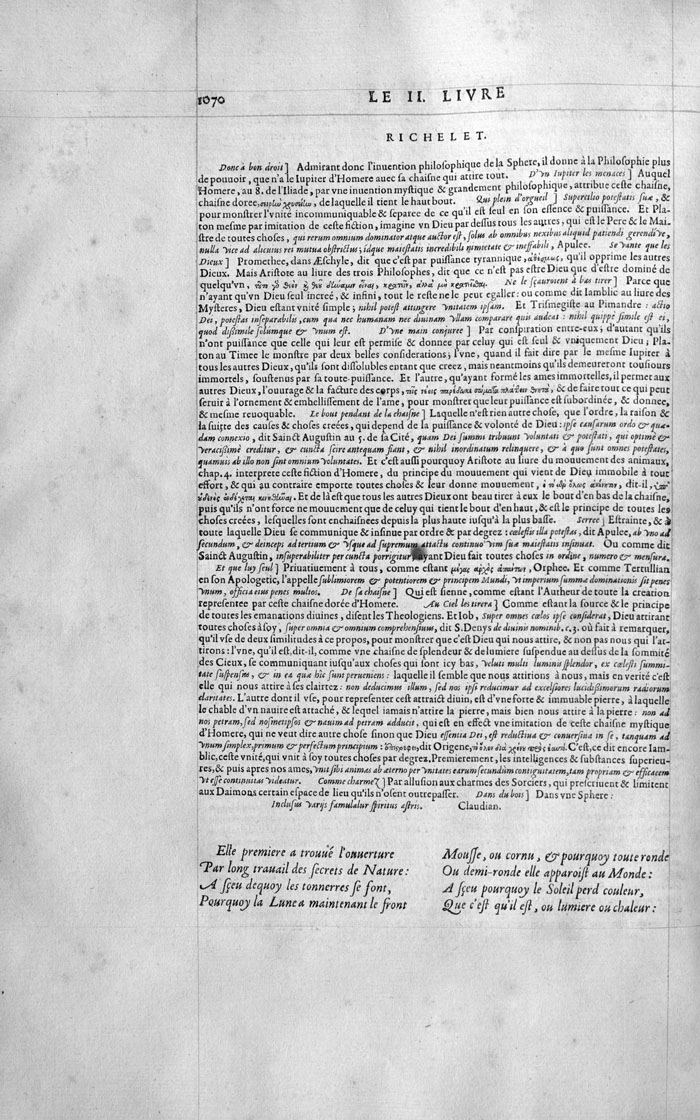 1070
LE II. LIVRE
RICHELET.
Donc à bon droit ] Admirant donc l'inuention philosophique de la Sphere, il donne à la Philosophie plus
de pouuoir, que n'a le Iupiter d'Homere auec sa chaisne qui attire tout. D'vn Iupiter les menaces ] Auquel
Homere, au 8. de l'Iliade, par vne inuention mystique & grandement philosophique, attribue ceste chaisne,
chaisne doree, de laquelle il tient le haut bout. Qui plein d'orgueil ] Supercilio potestatis suæ, &
pour monstrer l'vnité incommuniquable & separee de ce qu'il est seul en son essence & puissance. Et Pla-
ton mesme par imitation de ceste fiction, imagine vn Dieu par dessus tous les autres, qui est le Pere & le Mai-
stre de toutes choses, qui rerum omnium dominator atque auctor est, solus ab omnibus nexibus aliquid patiendi gerendi've,
nulla vice ad alicuius rei mutua obstrictus; idque maiestatis incredibili nimietate & ineffabili, Apulee. Se vante que les
Dieux ] Promethee, dans Æschyle, dit que c'est par puissance tyrannique, qu'il opprime les autres
Dieux. Mais Aristote au liure des trois Philosophes, dit que ce n'est pas estre Dieu que d'estre dominé de
quelqu'vn, Ne le sçauroient à bas tirer ] Parce que
n'ayant qu'vn Dieu seul increé, & infini, tout le reste ne le peut egaller: ou comme dit Iamblic au liure des
Mysteres, Dieu estant vnité simple; nihil potest attingere vnitatem ipsam. Et Trismegiste au Pimandre: actio
Dei, potestas inseparabilis, cum qua nec humanam nec diuinam vllam comparare quis audeat: nihil quippe simile est ei,
quod dissimile solumque & vnum est. D'vne main coniuree ] Par conspiration entre-eux; d'autant qu'ils
n'ont puissance que celle qui leur est permise & donnee par celuy qui est seul & vniquement Dieu; Pla-
ton au Timee le monstre par deux belles considerations; l'vne, quand il fait dire par le mesme Iupiter à
tous les autres Dieux, qu'ils sont dissolubles entant que creez, mais neantmoins qu'ils demeureront tousiours
immortels, soustenus par sa toute-puissance. Et l'autre, qu'ayant formé les ames immortelles, il permet aux
autres Dieux, l'ouurage & la facture des corps, & de faire tout ce qui peut
seruir à l'ornement & embellissement de l'ame, pour monstrer que leur puissance est subordinée, & donnee,
& mesme reuoquable. Le bout pendant de la chaisne ] Laquelle n'est rien autre chose, que l'ordre, la raison &
la suitte des causes & choses creées, qui depend de la puissance & volonté de Dieu: ipse causarum ordo & quæ-
dam connexio, dit Sainct Augustin au 5. de sa Cité, quam Dei summi tribuunt voluntati & potestati, qui optimè &
veracissimè creditur, & cuncta scire antequam fiant, & nihil inordinatum relinquere, & à quo sunt omnes potestates,
quamuis ab illo non sint omnium voluntates. Et c'est aussi pourquoy Aristote au liure du mouuement des animaux,
chap. 4. interprete ceste fiction d'Homere, du principe du mouuement qui vient de Dieu immobile à tout
effort, & qui au contraire emporte toutes choses & leur donne mouuement, dit-il,
Et de là est que tous les autres Dieux ont beau tirer à eux le bout d'en bas de la chaisne,
puis qu'ils n'ont force ne mouuement que de celuy qui tient le bout d'en haut, & est le principe de toutes les
choses creées, lesquelles sont enchaisnées depuis la plus haute iusqu'à la plus basse. Serree ] Estrainte, & à
toute laquelle Dieu se communique & insinue par ordre & par degrez: cælestis illa potestas, dit Apulee, ab vno ad
secundum, & deinceps ad tertium & vsque ad supremum attactu continuo vim suæ maiestatis insinuat. Ou comme dit
Sainct Augustin, insuperabiliter per cuncta porrigitur, ayant Dieu fait toutes choses in ordine, numero & mensura.
Et que luy seul ] Priuatiuement à tous, comme estant Orphee. Et comme Tertullian
en son Apologetic, l'appelle sublimiorem & potentiorem & principem Mundi, vt imperium summa dominationis sit penes
vnum, officia eius penes multos. De sa chaisne ] Qui est sienne, comme estant l'Autheur de toute la creation
representee par ceste chaisne dorée d'Homere. Au Ciel les tirera ] Comme estant la source & le principe
de toutes les emanations diuines, disent les Theologiens. Et Iob, Super omnes cœlos ipse considerat, Dieu attirant
toutes choses à soy, super omnia & omnium comprehensium, dit S. Denys de diuinis nominib. c. 3. où fait à remarquer,
qu'il vse de deux similitudes à ce propos, pour monstrer que c'est Dieu qui nous attire, & non pas nous qui l'at-
tirons: l'vne, qu'il est, dit-il, comme vne chaisne de splendeur & de lumiere suspendue au dessus de la sommité
des Cieux, se communiquant iusqu'aux choses qui sont icy bas, veluti multi luminis splendor, ex cœlesti summi-
tate suspensus, & in ea quæ hîc sunt perueniens: laquelle il semble que nous attirions à nous, mais en verité c'est
elle qui nous attire à ses clairtez: non deducimus illum, sed nos ipsi reducimur ad excelsiores lucidissimorum radiorum
claritates. L'autre dont il vse, pour representer cest attraict diuin, est d'vne forte & immuable pierre, à laquelle
le chable d'vn nauire est attaché, & lequel iamais n'attire la pierre, mais bien nous attire à la pierre: non ad
nos petram, sed nosmetipsos & nauim ad petram adducit, qui est en effect vne imitation de ceste chaisne mystique
d'Homere, qui ne veut dire autre chose sinon que Dieu essentia Dei, est reductiua & conuersiua in se, tanquam ad
vnum simplex, primum & perfectum principium: dit Origene, C'est, ce dit encore Iam-
blic, ceste vnité, qui vnit à soy toutes choses par degrez, Premierement, les intelligences & substances superieu-
res, & puis apres nos ames, vnit sibi animas ab æterno per vnitates earum secundùm contiguitatem, tam propriam & efficacem
vt esse continuitas videatur. Comme charmez ] Par allusion aux charmes des Sorciers, qui prescriuent & limitent
aux Daimons certain espace de lieu qu'ils n'osent outrepasser. Dans du bois ] Dans vne Sphere:
Inclusus varijs famulatur spiritus astris. Claudian.
Elle premiere a trouué l'ouuerture
Par long trauail des secrets de Nature:
A sçeu dequoy les tonnerres se font,
Pourquoy la Lune a maintenant le front
Mousse, ou cornu, & pourquoy toute ronde
Ou demi-ronde elle apparoist au Monde:
A sçeu pourquoy le Soleil perd couleur,
Que c'est qu'il est, ou lumiere ou chaleur: